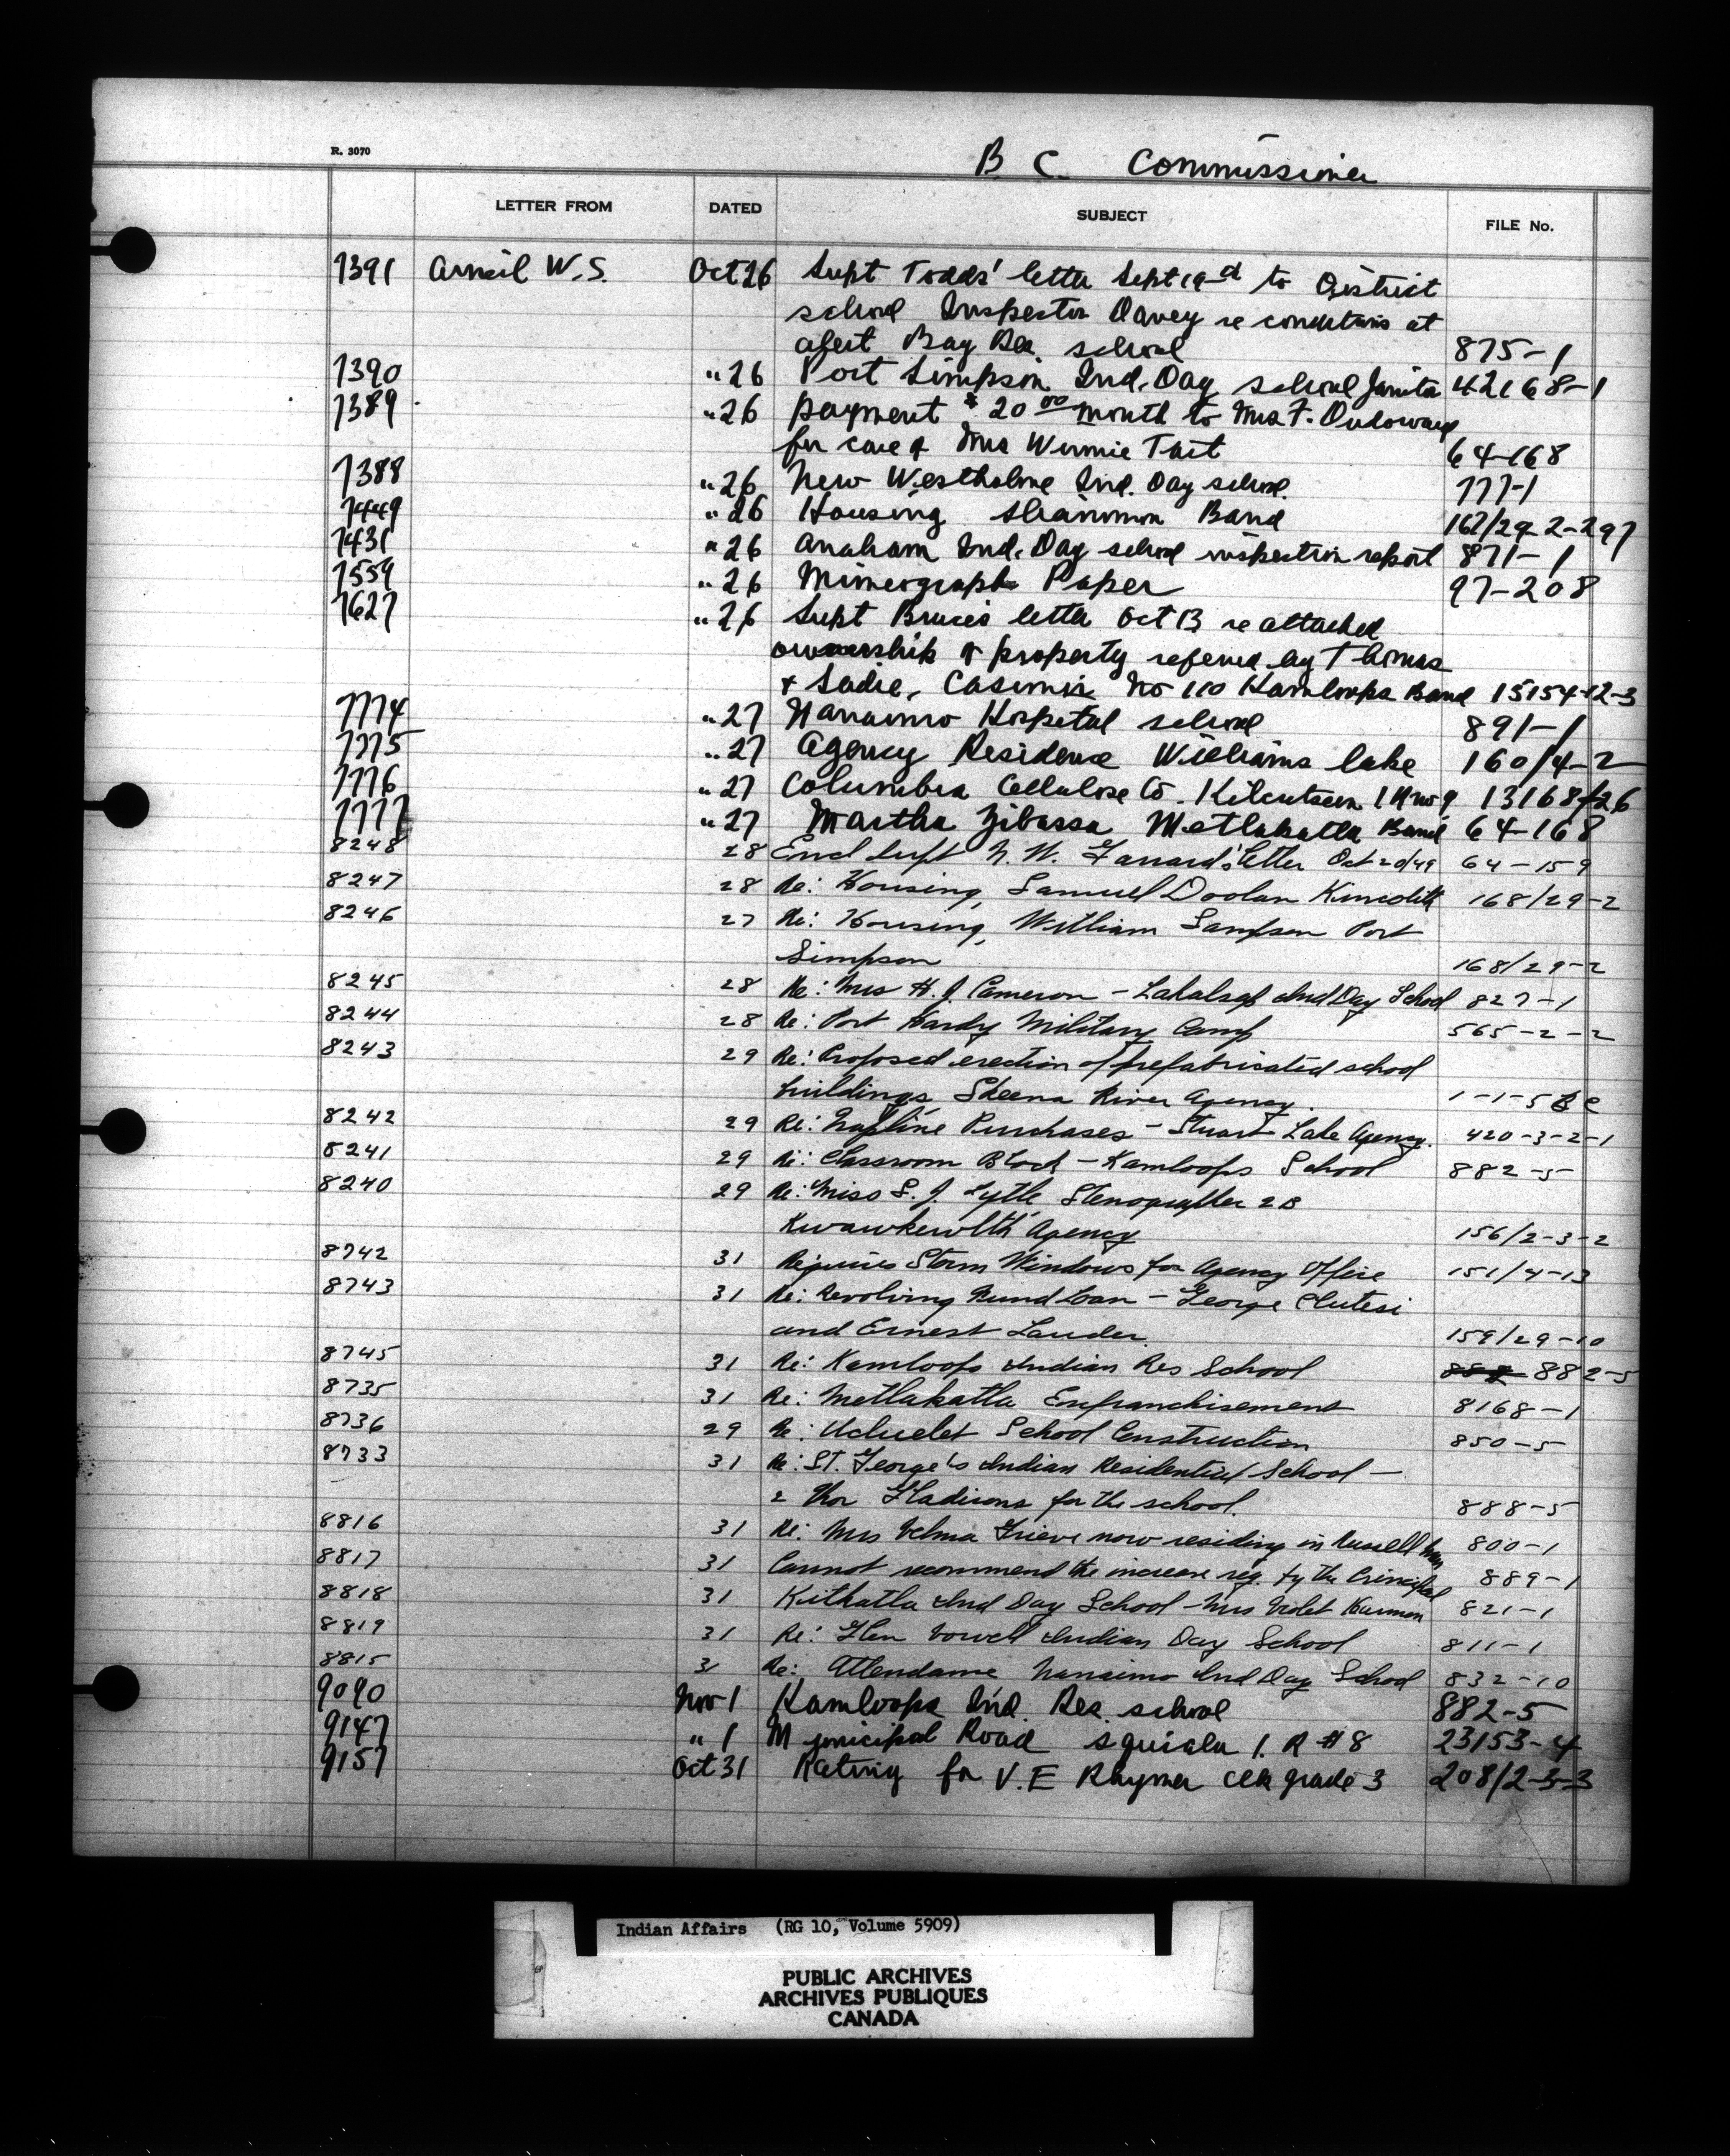 R. 3070
B C. Commissioner
LETTER FROM DATED SUBJECT FILE No.
7391 Arneil W.S. Oct 26 Supt Todds' letter Sept 19 to District
school Inspector Davey re conditions at
Alert Bay Res. school 875-1
7390 "26 Port Simpson Ind. Day school Janitor 42168-1
7389 "26 payment $20 00 month to Mrs F.
for care of Mrs Winnie Tait 64-168
7388 "26 New Westholme Ind. Day school. 777-1
7449 "26 Housing Band 167/29-2-297
7431 "26 Anaham Ind. Day school inspection report 871-1
7559 "26 Mimeograph Paper 97-208
7627 "26 Supt Bruce's letter Oct 13 re attached
ownership of property refered by Thomas
& Sadie, Casimir No 110 Kamloops Band 15154-12-3
7774 "27 Nanaimo Hospital school 891-1
7775 "27 Agency Residence Williams Lake 160/4-2
7776 "27 Columbia Cellulose Co. Kitcutseen I R no 9 13168-26
7777 "27 Martha Zibassa Metlakatla Band 64-168
8248 28 Encl Supt letter Oct 20/49 64-159
8247 28 Re: Housing, Samuel Doolan Kincolith 168/29-2
8246 27 Re: Housing, William Sampson Port
Simpson 168/29-2
8245 28 Re: Mrs H. J. Cameron - Lakalsap Ind Day School 827-1
8244 28 Re: Port Hardy Military Camp 565-2-2
8243 29 Re: Proposed erection of prefabricated school
buildings Skeena River Agency. 1-1-5
8242 29 Re: Trapline Purchases - Stuart Lake Agency. 420-3-2-1
8241 29 Re: Classroom Block - Kamloops School 882-5
8240 29 Re: Miss S. J. Lytle Stenographer 2B
Kwawkewlth Agency 156/2-3-2
8742 31 Requires Storm Windows for Agency Office 151/4-13
8743 31 Re: Revolving Fund Loan - George Clutesi
and Ernest Lauder 159/29-10
8745 31 Re: Kamloops Indian Res School 882-5
8735 31 Re: Metlakatla Enfranchisement 8168-1
8736 29 Re: Ucluelet School Construction 850-5
8733 31 Re: St. George's Indian Residential School -
2 for the school. 888-5
8816 31 Re: Mrs Velma Grieve now residing in Russell Man 800-1
8817 31 Cannot recommend the increase req. by the Principal 889-1
8818 31 Kitkatla Ind Day School - Mrs Violet 821-1
8819 31 Re: Glen Vowell Indian Day School 811-1
8815 31 Re: Attendance Nanaimo Ind Day School 832-10
9090 Nov 1 Kamloops Ind. Res. school 882-5
9147 " 1 Municipal Road Squiala I. R #8 23153-4
9157 Oct 31 Rating for V. E Rhymer Clk grade 3 208/2-3-3
Indian Affairs (RG 10, Volume 5909)
PUBLIC ARCHIVES
ARCHIVES PUBLIQUES
CANADA